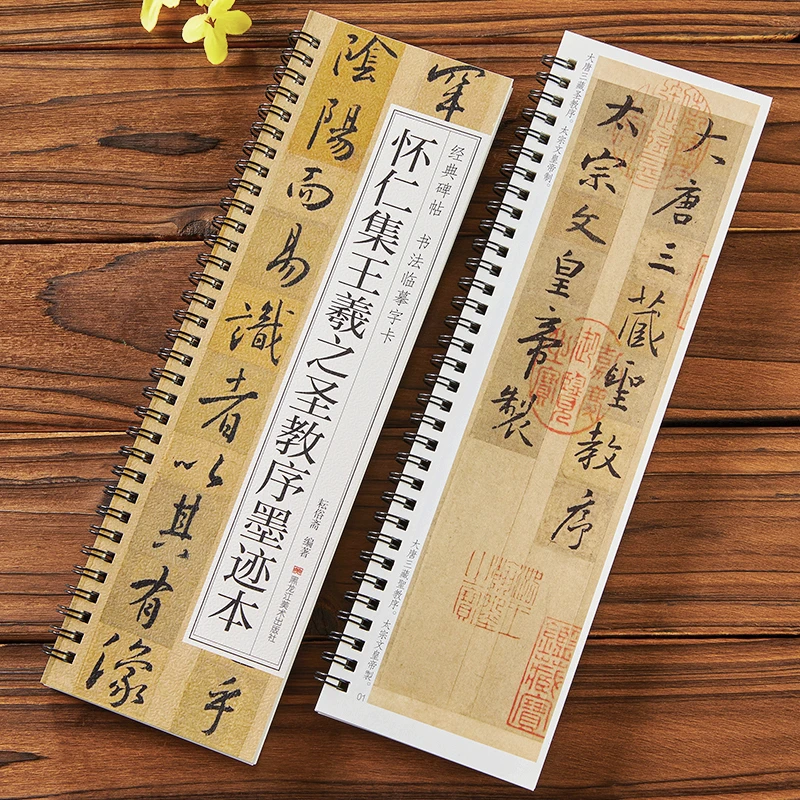 罕
乎
经典碑帖 书法临摹字卡
怀仁集王羲之圣教序墨迹本
耘俗斋 编著
黑龙江美术出版社
陰陽而易識者以其有像
大唐三藏聖教序
太宗文皇帝製
大唐三藏圣教序。太宗文皇帝制。
大唐三藏聖教序。太宗文皇帝製。
01